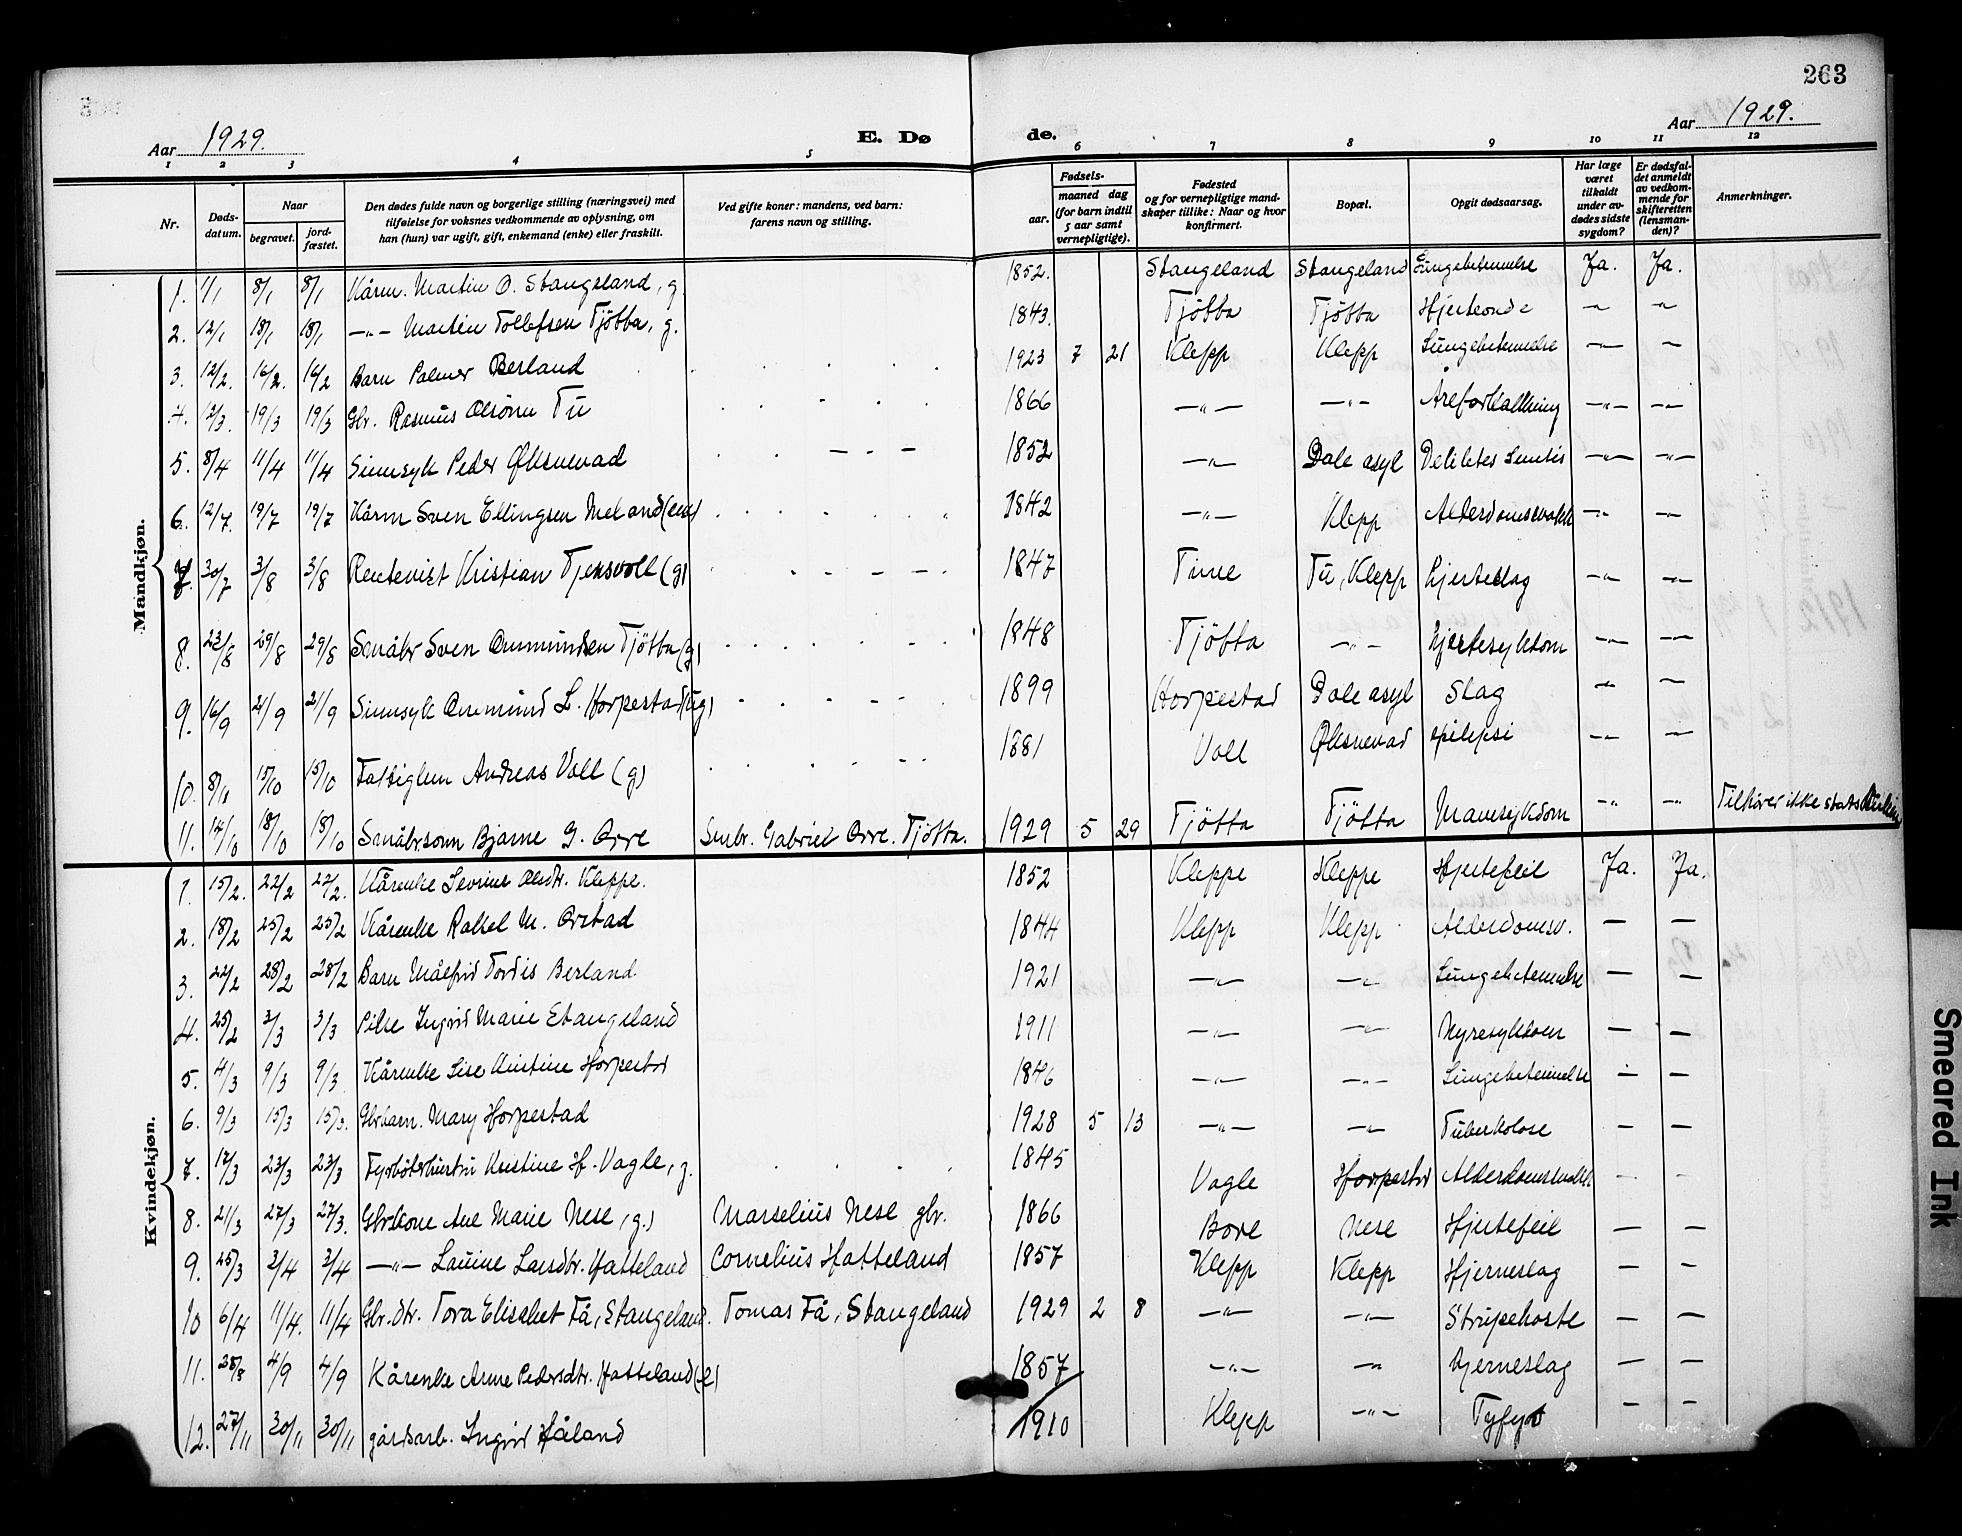 263
Aar 1929. E. Dø de. Aar 1929.
1 2 3 4 5 6 7 8 9 10 11 12
Nr. Døds-datum. Naar begravet. jord-fæstet. Den dødes fulde navn og borgerlige stilling (næringsvei) med tilføielse for voksnes vedkommende av oplysning, om han (hun) var ugift, gift, enkemand (enke) eller fraskilt. Ved gifte koner: mandens, ved barn: farens navn og stilling. Fødsels- aar. maaned dag (for barn indtil 5 aar samt vernepligtige). Fødested og for vernepligtige mand-skaper tillike: Naar og hvor konfirmert. Bopæl. Opgit dødsaarsag. Har læge været tilkaldt under av-dødes sidste sygdom? Er dødsfal-det anmeldt av vedkom-mende for skifteretten (lensman-den)? Anmerkninger.
Mandkjøn.
1. 1/1 8/1 8/1 Kårm. Martin O. Stangeland, g. 1852. Stangeland Stangeland Lungebetennelse Ja. Ja.
2. 12/1 18/1 18/1 —"— Martin Tollefsen Tjötta, g. 1843. Tjötta Tjötta Hjerteonde — "
3. 12/2. 16/2. 16/2 Barn Palmer Berland 1923 7 21 Klepp Klepp Lungebetennelse —"— —
4. 12/3. 19/3 19/3 Gbr. Rasmus Olsönn Tu 1866 —"— —"— Åreforkalkning —"— —"—
5. 8/4 11/4 11/4 Sinnsyk Peder Öksnevad — . — . — 1852 —"— Dale asyl —"— —"—
6. 12/7. 19/7 19/7 Kårm Sven Ellingsen Meland (enk) 1842 —"— Klepp Alderdomssvakh —"— —"—
7. 30/7 3/8 3/8 Rentenist Kristian Tjensvoll (g) 1847 Time Tu, Klepp Hjerteslag —"— —"—
8. 23/8 29/8 29/8 Småbr Sven Ommundsen Tjötta (g) 1848 Tjötta —"— Hjertesykdom —"— —"—
9. 16/9 21/9 21/9 Sinnsyk Ommund L. Horpestad (ug) 1899 Horpestad Dale asyl Slag —"— —"—
10. 8/10 15/10 15/10 Fattiglem Andreas Voll (g) 1881 Voll Öksnevad epilepsi —"— —"—
11. 14/10 18/10 18/10 Småbrsonn Bjarne G. Orre Smbr. Gabriel Orre. Tjötta. 1929 5 29 Tjötta Tjötta Mavesykdom —"— —"— Tilhører ikke statskirken
Kvindekjøn.
1. 15/2. 22/2 22/2. Kårenke Severine Kleppe. 1852 Kleppe Kleppe Hjertefeil Ja. Ja.
2. 18/2 25/2 25/2 Kårenke Rakel M. Orstad 1844 Klepp Klepp Alderdomssv. — —
3. 22/2 28/2 28/2 Barn Målfrid Tordis Berland. 1921 —"— —"— Lungebetennelse — —
4. 25/2 3/3 3/3 Pike Ingrid Marie Stangeland 1911 —"— —"— Nyresykdom — —
5. 4/3 9/3 9/3 Kårenke Lise Kristine Horpestad 1846 —"— —"— Lungebetennelse — —
6. 9/3 15/3 15/3. Gbrbarn. Mary Horpestad 1928 5 13 —"— —"— Tuberkolose — —
7. 17/3 23/3 23/3 Fyrbøterhustru Kristine H. Vagle, g. 1845 Vagle Horpestad Alderdomssvakh. — —
8. 21/3 27/3 27/3. Gbrkone Ane Marie Nese, (g.) Marselius Nese gbr. 1866 Bore Nese Hjertefeil — —
9. 25/3 3/4 3/4 —"— Lauine Larsdtr. Hatteland Cornelius Hatteland 1857 Klepp Klepp Hjerneslag — —
10 6/4 11/4. 11/4 Gbr. dtr. Tora Elisabet Få, Stangeland. Tomas Få, Stangeland 1929 2 8 —"— —"— Strupehoste — —
11. 28/8 4/9 4/9 Kårenke Anne Pedersdtr. Hatteland (e) 1857 —"— —"— hjerneslag — —
12. 27/11 30/11 30/11 gårdarb. Ingrid Håland 1910 Klepp —"— Tyfus — —
Smeared Ink